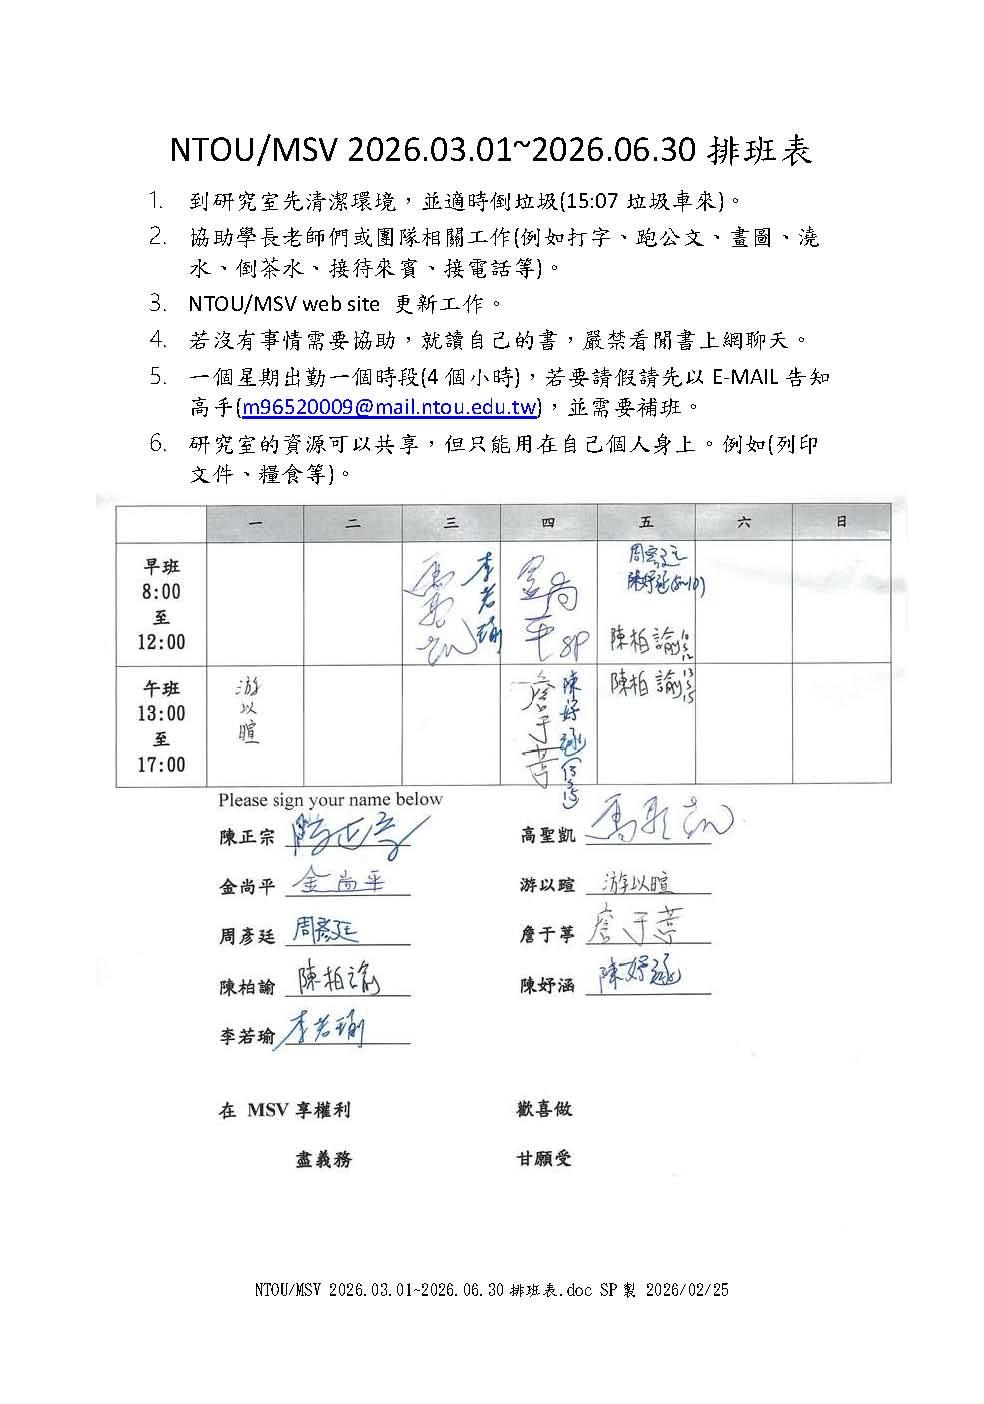 NTOU/MSV 2026.03.01~2026.06.30 排班表
1. 到研究室先清潔環境，並適時倒垃圾(15:07 垃圾車來)。
2. 協助學長老師們或團隊相關工作(例如打字、跑公文、畫圖、澆
水、倒茶水、接待來賓、接電話等)。
3. NTOU/MSV web site 更新工作。
4. 若沒有事情需要協助，就讀自己的書，嚴禁看閒書上網聊天。
5. 一個星期出勤一個時段(4 個小時)，若要請假請先以 E-MAIL 告知
高手(m96520009@mail.ntou.edu.tw)，並需要補班。
6. 研究室的資源可以共享，但只能用在自己個人身上。例如(列印
文件、糧食等)。
一 二 三 四 五 六 日
早班
8:00
至
12:00
高聖凱 李若瑜 金尚平 SP 周彥廷
陳妤涵(8~10)
陳柏諭
午班
13:00
至
17:00
游以暄 詹于葶 陳妤涵 陳柏諭 13~15
Please sign your name below
陳正宗 陳正宗 高聖凱 高聖凱
金尚平 金尚平 游以暄 游以暄
周彥廷 周彥廷 詹于葶 詹于葶
陳柏諭 陳柏諭 陳妤涵 陳妤涵
李若瑜 李若瑜
在 MSV 享權利 歡喜做
盡義務 甘願受
NTOU/MSV 2026.03.01~2026.06.30 排班表.doc SP 製 2026/02/25